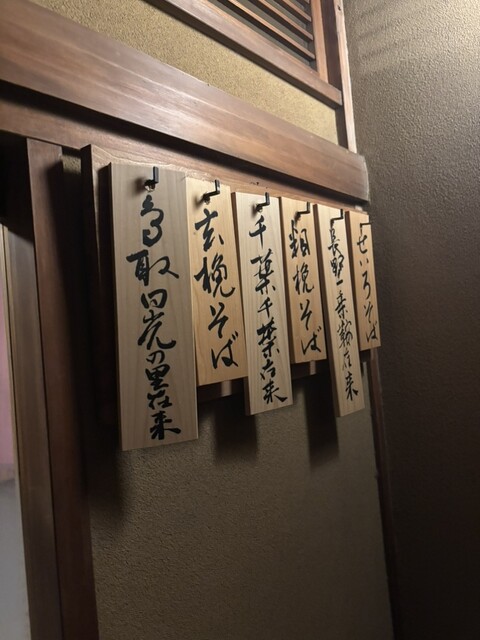 せいろそば
長野 乗鞍在来
粗挽そば
千葉 千葉在来
玄挽そば
鳥取 日光の里在来